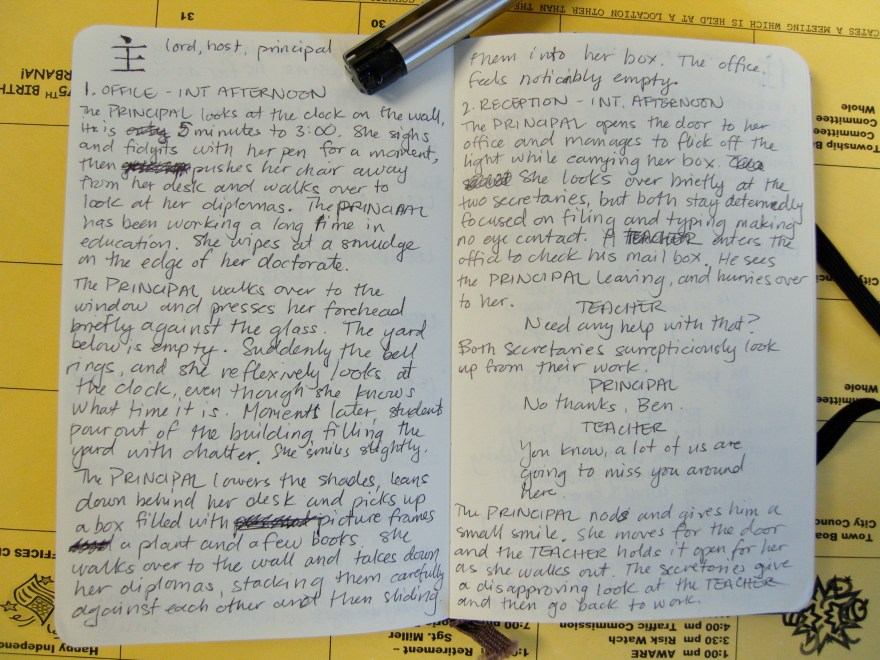 主 lord, host, principal
1. OFFICE - INT AFTERNOON
The PRINCIPAL looks at the clock on the wall,
It is 5 minutes to 3:00. She sighs
and fidgits with her pen for a moment,
then pushes her chair away
from her desk and walks over to
look at her diplomas. The PRINCIPAL
has been working a long time in
education. She wipes at a smudge
on the edge of her doctorate.
The PRINCIPAL walks over to the
window and presses her forehead
briefly against the glass. The yard
below is empty. Suddenly the bell
rings, and she reflexively looks at
the clock, even though she knows
what time it is. Moments later, students
pour out of the building filling the
yard with chatter. She smiles slightly.
The PRINCIPAL lowers the shades, leans
down behind her desk and picks up
a box filled with picture frames
a plant and a few books. She
walks over to the wall and takes down
her diplomas, stacking them carefully
against each other and then sliding
them into her box. The office
feels noticibly empty.
2. RECEPTION - INT. AFTERNOON
The PRINCIPAL opens the door to her
office and manages to flick off the
light while carrying her box.
She looks over briefly at the
two secretaries, but both stay determedly
focused on filing and typing making
no eye contact. A TEACHER enters the
office to check his mail box. He sees
the PRINCIPAL leaving, and hurries over
to her.
TEACHER
Need any help with that?
Both secretaries surrepticiously look
up from their work.
PRINCIPAL
No thanks, Ben.
TEACHER
You know, a lot of us are
going to miss you around
here.
The PRINCIPAL nods and gives him a
small smile. She moves for the door
and the TEACHER holds it open for her
as she walks out. The secretaries give
a disapproving look at the TEACHER
and then go back to work.
CATES A MEETING WHICH IS HELD AT A LOCATION OTHER THAN THE
31
30
75TH BIRTH
RBANA!
Township B
Committee
Committee
Whole
City Council
Committee
Whole
Town Boa
City Counc
OFFICES C
Happy Independen
Retirement –
Sgt. Miller
7:00
4:00 pm Traffic Commission
3:30 pm Risk Watch
1:00 pm AWARE